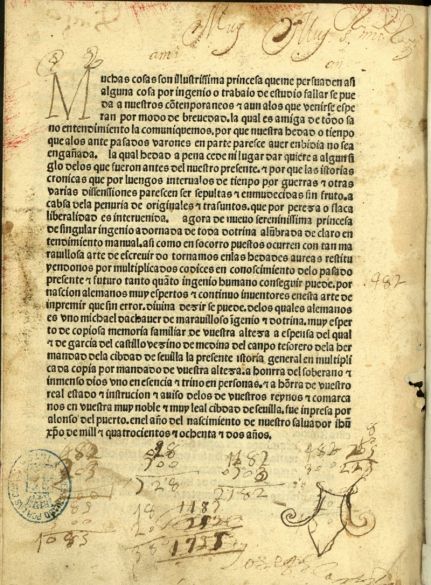 Muy Muy
Muchas cosas son illustrissima princesa que me persuaden asi
alguna cosa por ingenio o trabaio de estudio fallar se pue
da a nuestros cõtemporaneos ⁊ aun a los que venirse espe
ran por modo de breuedad. la qual es amiga de todo sa
no entendimiento la comuniquemos. por que nuestra hedad o tienpo
que a los ante pasados varones en parte paresce auer enbidia no sea
engañada. la qual hedad a pena cede ni lugar dar quiere a algun si
glo de los que fueron antes del nuestro presente. ⁊ por que las istorias
cronicas que por luengos interualos de tienpo por guerras ⁊ otras
varias dissensiones parescen ser sepultas ⁊ enmudecidas sin fruto. a
cabsa de la penuria de originales ⁊ trasuntos. que por pereza o flaca
liberalidad es interuenida. agora de nueuo sereninissima princesa
de singular ingenio adornada de toda dotrina alũbrada de claro en
tendimiento manual. asi como en socorro puestos ocurren con tan ma
rauillosa arte de escreuir do tornamos en las hedades aureas restitu
yendonos por multiplicados codices en conoscimiento de lo pasado
presente ⁊ futuro tanto quãto ingenio humano conseguir puede. por
nascion alemanos muy espertos ⁊ continuo inuentores en esta arte de
inpremir que sin error. diuina dezir se puede. de los quales alemanos
es vno michael dachauer de marauilloso igenio ⁊ dotrina. muy esper
to de copiosa memoria familiar de vuestra alteza a espensa del qual
⁊ de garcia del castillo vezino de medina del canpo tesorero de la her
mandad de la cibdad de seuilla la presente istoria general en multipli
cada copia por mandado de vuestra alteza. a honrra del soberano ⁊
inmenso dios vno en esencia ⁊ trino en personas. ⁊ a hõrra de vuestro
real estado ⁊ instrucion ⁊ auiso de los de vuestros reynos ⁊ comarca
nos en vuestra muy noble ⁊ muy leal cibdad de seuilla. fue inpresa por
alonso del puerto. en el año del nascimiento de nuestro saluador ihũ
xp̃o de mill ⁊ quatrocientos ⁊ ochenta ⁊ dos años.
482